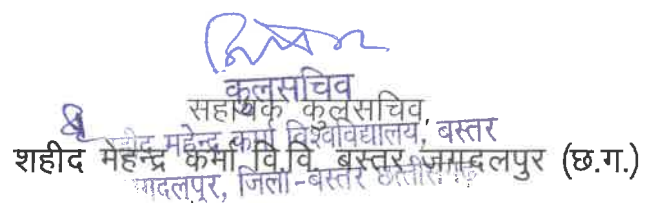 कुलसचिव
सहायक कुलसचिव,
शहीद महेन्द्र कर्मा विश्वविद्यालय, बस्तर
शहीद मेहन्द्र कर्मा वि.वि. बस्तर जगदलपुर (छ.ग.)
जगदलपुर, जिला-बस्तर छत्तीसगढ़